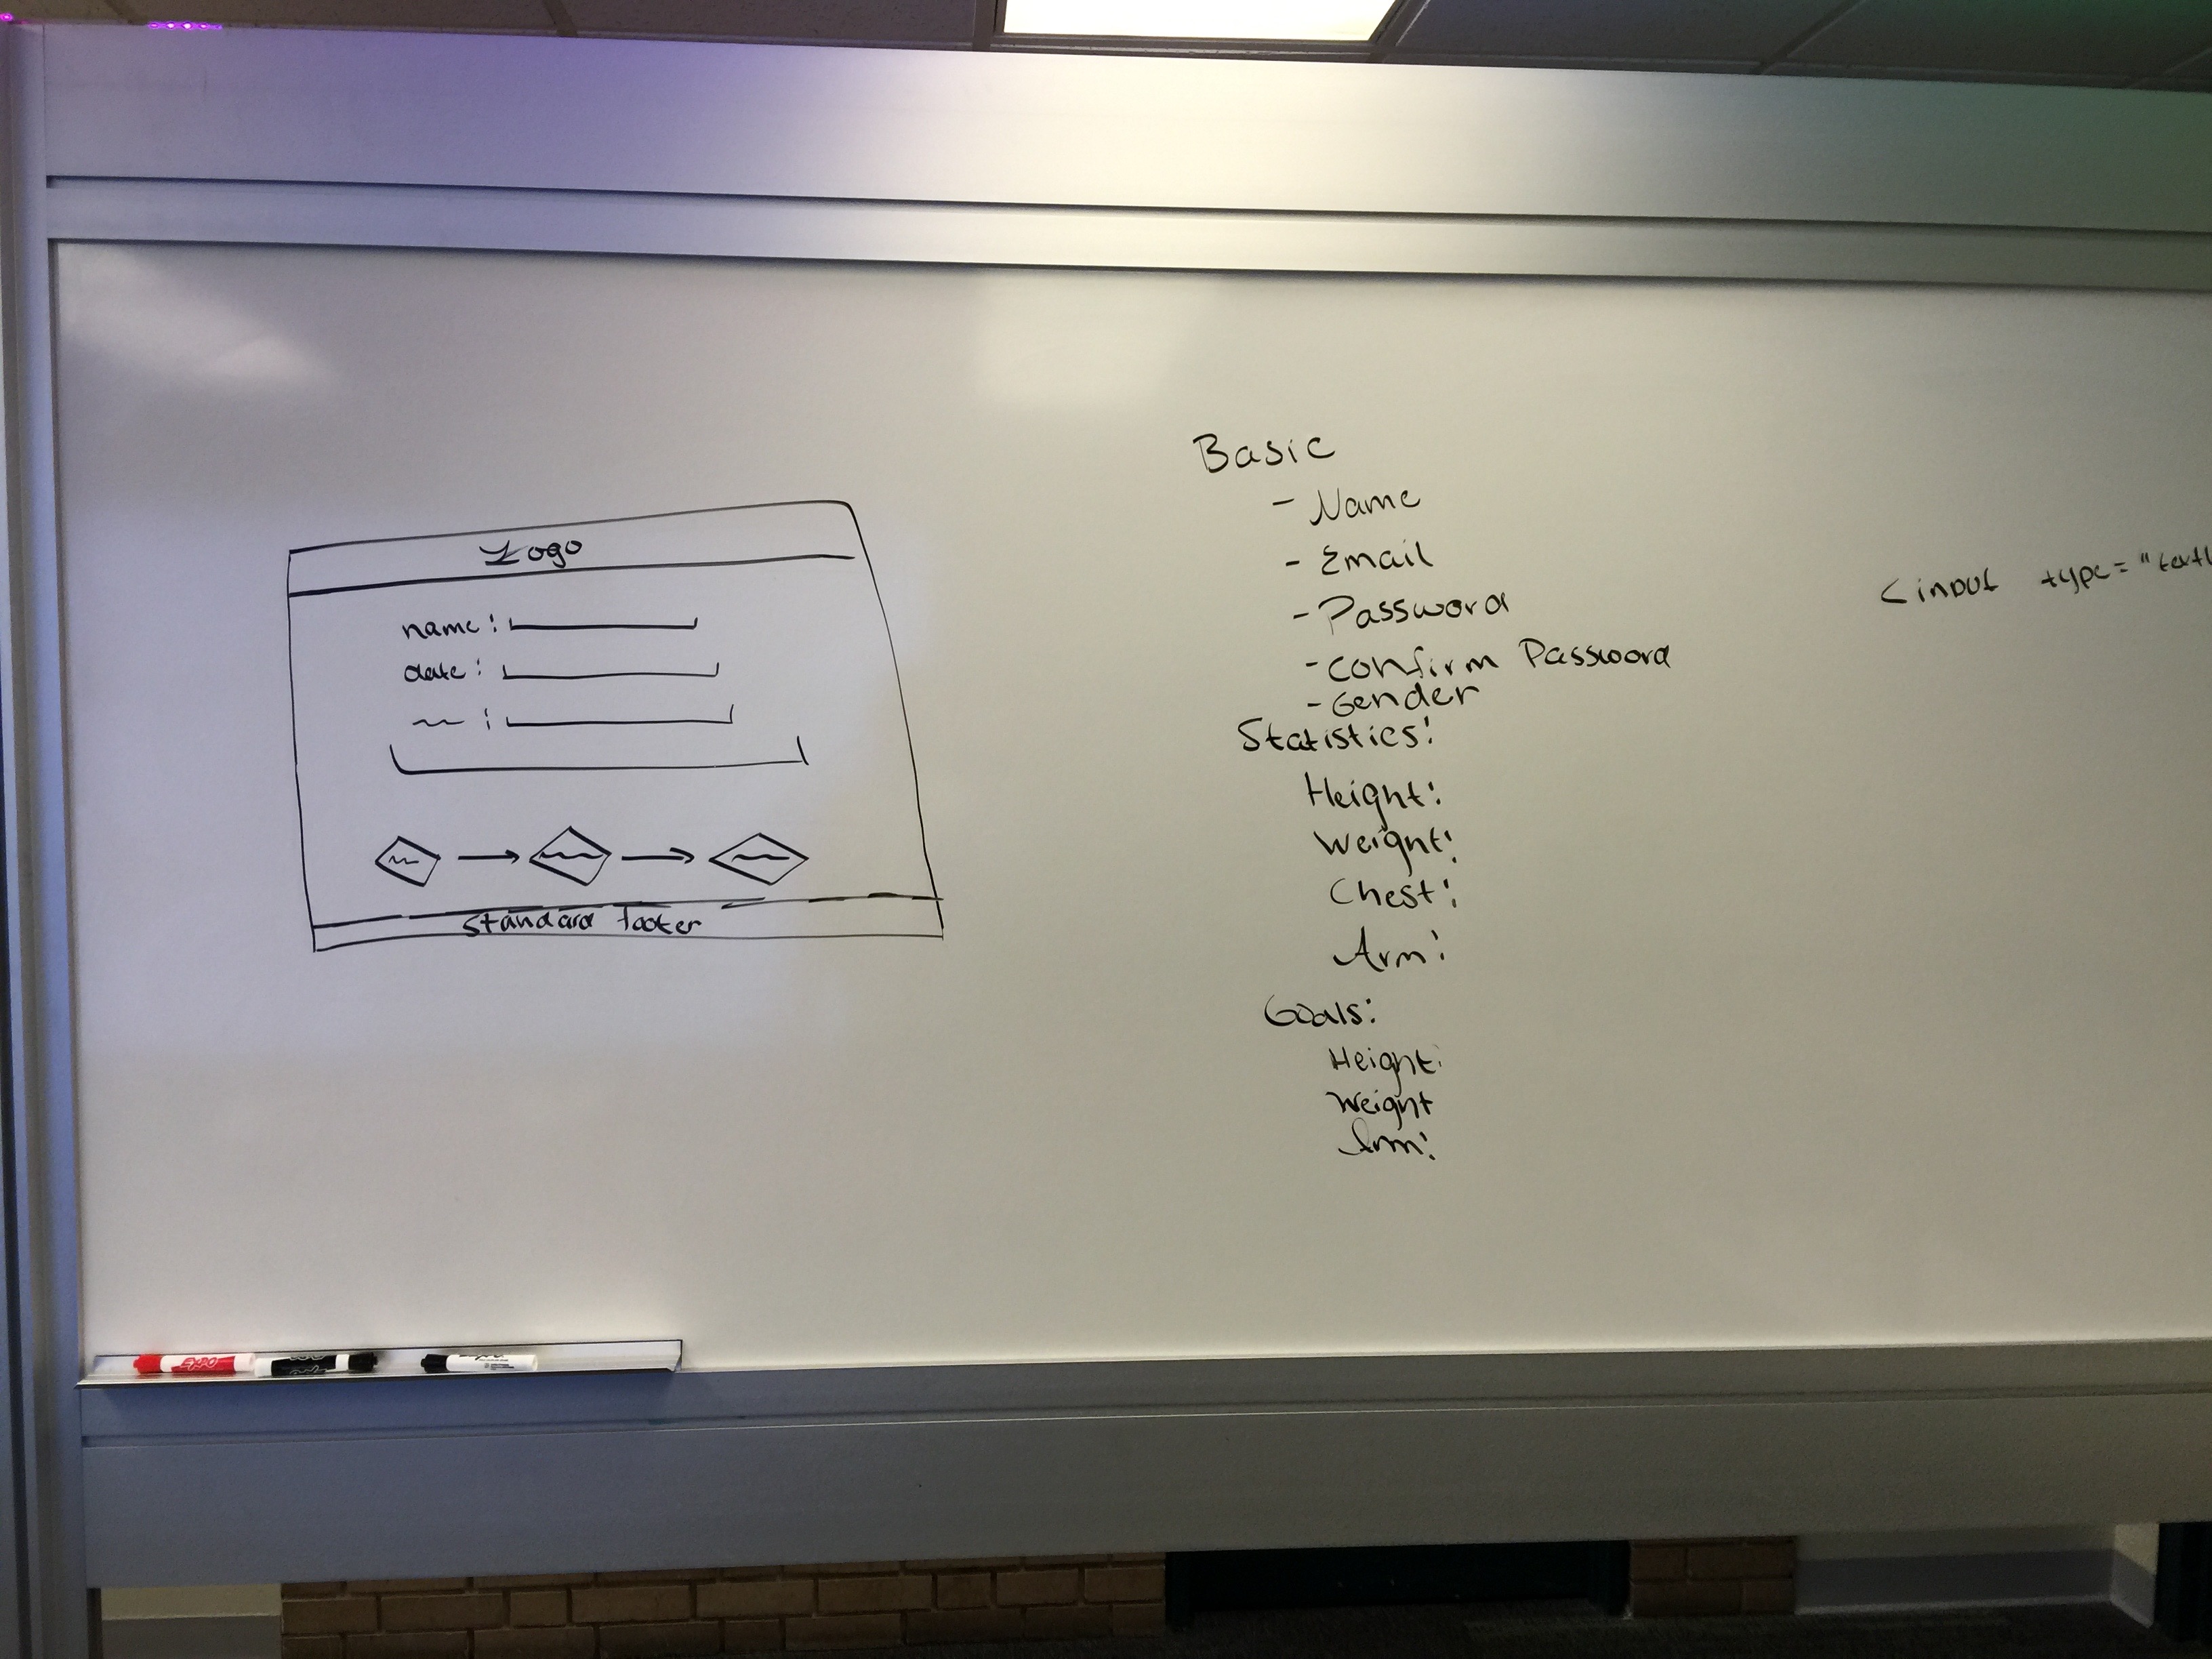 Logo
name:
date:
standard footer
Basic
- Name
- Email
- Password
- Confirm Password
- Gender
Statistics:
Height:
Weight:
Chest:
Arm:
Goals:
Height:
Weight
Arm:
<input type="text
EXPO